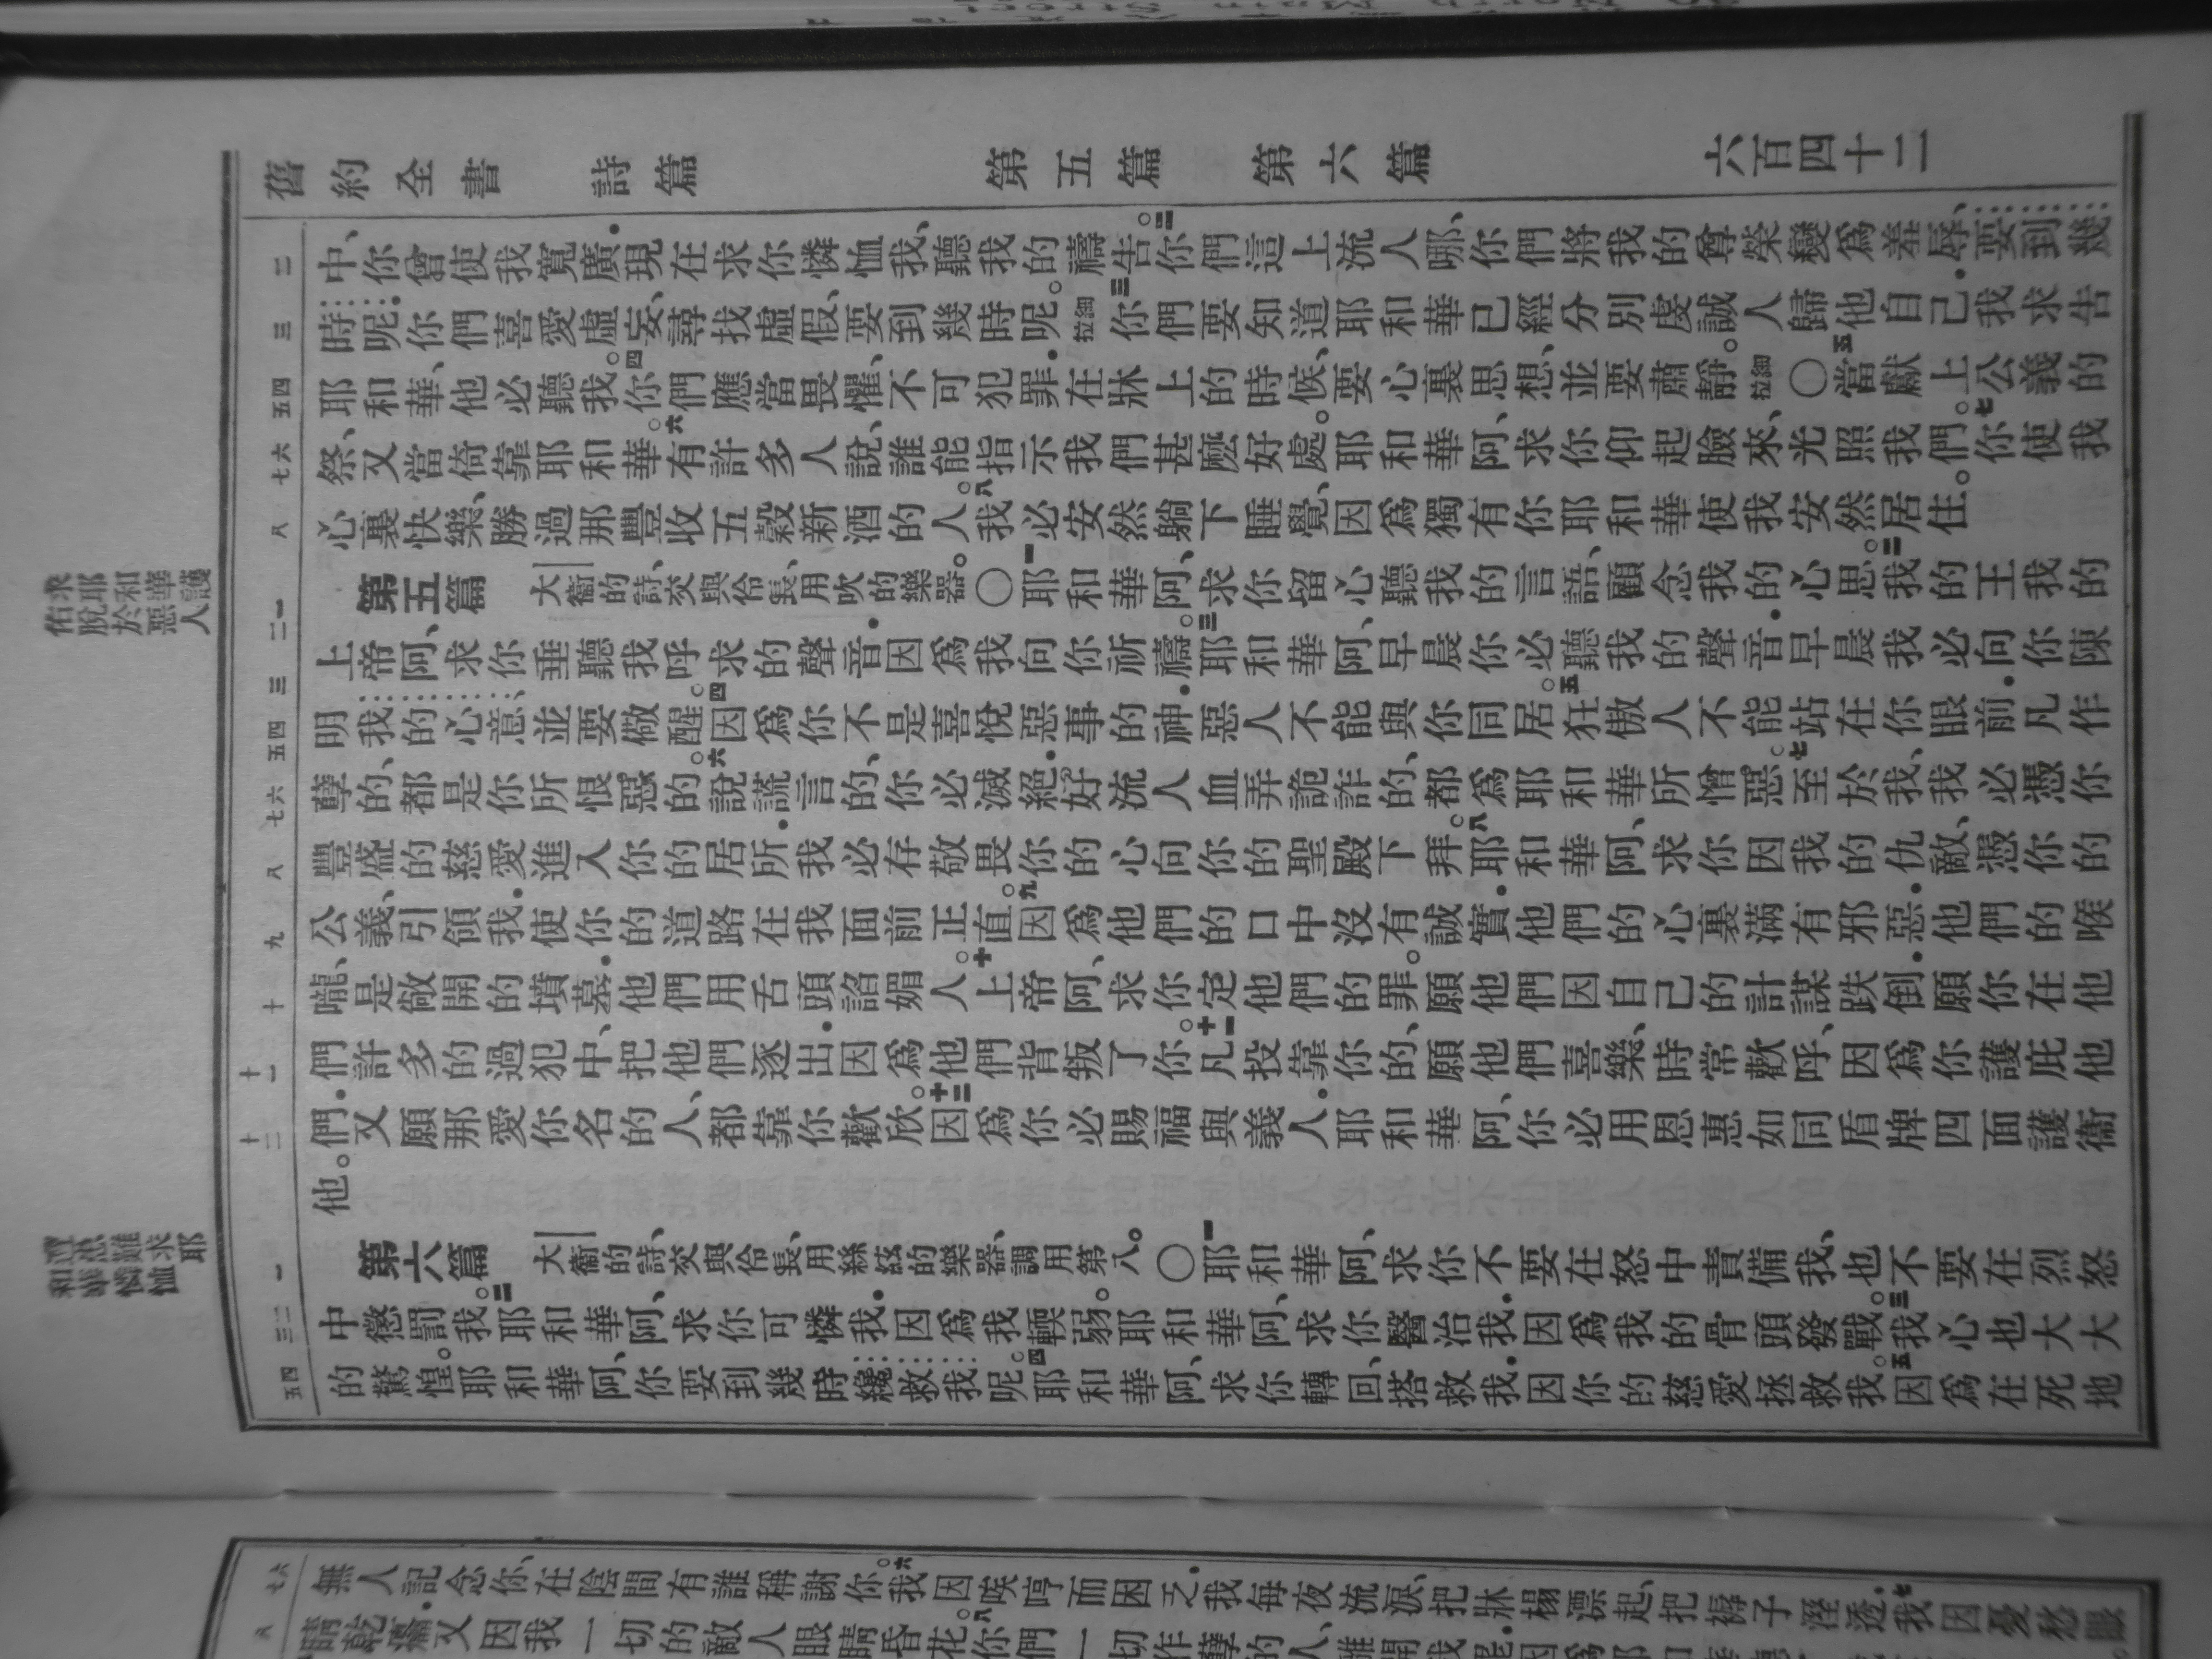 舊約全書 詩篇 第五篇 第六篇 六百四十二
二 中、你曾使我寬廣．現在求你憐恤我、聽我的禱告。二你們這上流人哪、你們將我的尊榮變爲羞辱、要到幾
三 時呢．你們喜愛虛妄、尋找虛假、要到幾時呢。細拉 三你們要知道耶和華已經分別虔誠人歸他自己．我求告
四五 耶和華、他必聽我。四你們應當畏懼、不可犯罪．在牀上的時候、要心裏思想、並要肅靜。細拉 〇五當獻上公義的
六七 祭、又當倚靠耶和華。六有許多人說、誰能指示我們甚麽好處。耶和華阿、求你仰起臉來、光照我們。七你使我
八 心裏快樂、勝過那豐收五穀新酒的人。八我必安然躺下睡覺、因爲獨有你耶和華使我安然居住。
求耶和華護
佑脫於惡人
一二 第五篇 大衞的詩、交與伶長、用吹的樂器。〇一耶和華阿、求你留心聽我的言語、顧念我的心思。二我的王我的
上帝阿、求你垂聽我呼求的聲音．因爲我向你祈禱。三耶和華阿、早晨你必聽我的聲音．早晨我必向你陳
三四五 明我的心意、並要儆醒。四因爲你不是喜悅惡事的神．惡人不能與你同居。五狂傲人不能站在你眼前．凡作
六七 孽的、都是你所恨惡的。六說謊言的、你必滅絕．好流人血弄詭詐的、都爲耶和華所憎惡。七至於我、我必憑你
八 豐盛的慈愛進入你的居所．我必存敬畏你的心向你的聖殿下拜。八耶和華阿、求你因我的仇敵、憑你的
九 公義、引領我．使你的道路在我面前正直。九因爲他們的口中沒有誠實．他們的心裏滿有邪惡．他們的喉
十 嚨、是敞開的墳墓．他們用舌頭諂媚人。十上帝阿、求你定他們的罪。願他們因自己的計謀跌倒．願你在他
十一 們許多的過犯中、把他們逐出．因爲他們背叛了你。十一凡投靠你的、願他們喜樂、時常歡呼、因爲你護庇他
十二 們．又願那愛你名的人、都靠你歡欣。十二因爲你必賜福與義人．耶和華阿、你必用恩惠如同盾牌四面護衞
他。
遭患難求耶
和華憐恤
一 第六篇 大衞的詩、交與伶長、用絲絃的樂器、調用第八。〇一耶和華阿、求你不要在怒中責備我、也不要在烈怒
二三 中懲罰我。二耶和華阿、求你可憐我．因爲我輭弱。耶和華阿、求你醫治我．因爲我的骨頭發戰。三我心也大大
四五 的驚惶。耶和華阿、你要到幾時纔救我呢。四耶和華阿、求你轉回、搭救我．因你的慈愛拯救我。五因爲在死地
六七 無人記念你、在陰間有誰稱謝你。六我因唉哼而困乏．我每夜流淚、把牀榻漂起、把褥子溼透．七我因憂愁眼
八 睛乾癟．又因我一切的敵人眼睛昏花。八你們一切作孽的人、離開我罷．因爲耶和華